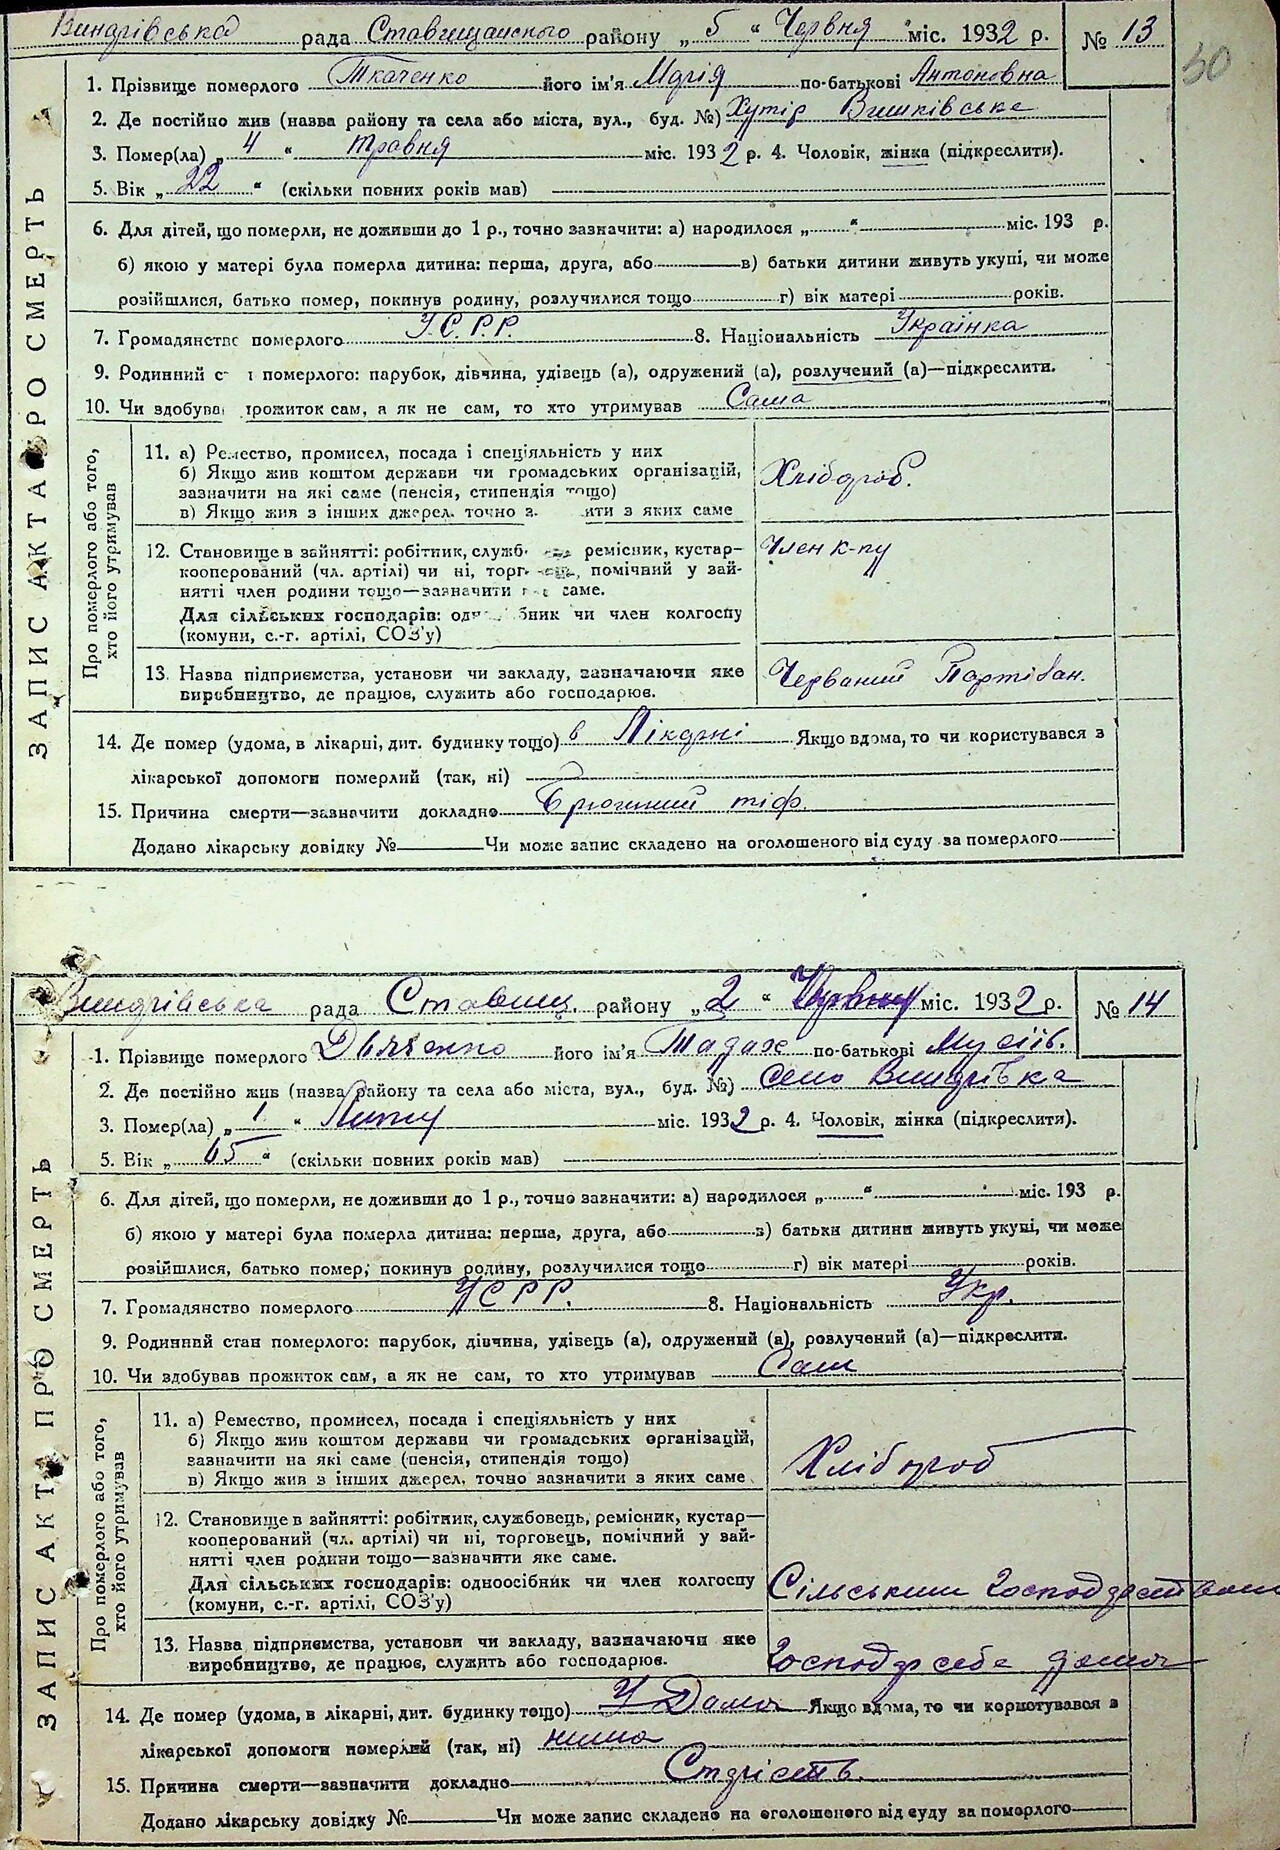 Винарівська рада Ставищанского району „5“ Червня міс. 1932 р. № 13
50
1. Прізвище померлого Ткаченко його ім'я Марія по-батькові Антоновна
2. Де постійно жив (назва району та села або міста, вул., буд. №) Хутір Вишківське
3. Помер(ла) „4“ травня міс. 1932 р. 4. Чоловік, жінка (підкреслити).
5. Вік „22“ (скільки повних років мав)
6. Для дітей, що померли, не доживши до 1 р., точно зазначити: а) народилося „ “ міс. 193 р.
б) якою у матері була померла дитина: перша, друга, або в) батьки дитини живуть укупі, чи може
розійшлися, батько помер, покинув родину, розлучилися тощо г) вік матері років.
7. Громадянство померлого У.С.Р.Р. 8. Національність Українка
9. Родинний с т померлого: парубок, дівчина, удівець (а), одружений (а), розлучений (а)—підкреслити.
10. Чи здобува прожиток сам, а як не сам, то хто утримував Сама
ЗАПИС АКТА ПРО СМЕРТЬ
Про померлого або того, хто його утримував
11. а) Ремество, промисел, посада і спеціяльність у них
б) Якщо жив коштом держави чи громадських організацій,
зазначити на які саме (пенсія, стипендія тощо)
в) Якщо жив з інших джерел, точно з ити з яких саме
Хлібороб.
12. Становище в зайнятті: робітник, служб ремісник, кустар—
кооперований (чл. артілі) чи ні, торг помічний у зай-
нятті член родини тощо—зазначити саме.
Для сільських господарів: од бник чи член колгоспу
(комуни, с.-г. артілі, СОЗ'у)
Член к-пу
13. Назва підприємства, установи чи закладу, зазначаючи яке
виробництво, де працює, служить або господарює.
Червоний Партізан.
14. Де помер (удома, в лікарні, дит. будинку тощо) в Лікарні Якщо вдома, то чи користувався з
лікарської допомоги померлий (так, ні)
15. Причина смерти—зазначити докладно Брюшний тіф.
Додано лікарську довідку № Чи може запис складено на оголошеного від суду за померлого
Винарівська рада Ставищ. району „2“ Червня міс. 1932 р. № 14
1. Прізвище померлого Дяченко його ім'я Тарах по-батькові Мусіїв.
2. Де постійно жив (назва району та села або міста, вул., буд. №) село Винарівка
3. Помер(ла) „1“ міс. 1932 р. 4. Чоловік, жінка (підкреслити).
5. Вік „65“ (скільки повних років мав)
6. Для дітей, що померли, не доживши до 1 р., точно зазначити: а) народилося „ “ міс. 193 р.
б) якою у матері була померла дитина: перша, друга, або в) батьки дитини живуть укупі, чи може
розійшлися, батько помер, покинув родину, розлучилися тощо г) вік матері років.
7. Громадянство померлого УСРР. 8. Національність Укр.
9. Родинний стан померлого: парубок, дівчина, удівець (а), одружений (а), розлучений (а)—підкреслити.
10. Чи здобував прожиток сам, а як не сам, то хто утримував Сам
ЗАПИС АКТА ПРО СМЕРТЬ
Про померлого або того, хто його утримував
11. а) Ремество, промисел, посада і спеціяльність у них
б) Якщо жив коштом держави чи громадських організацій,
зазначити на які саме (пенсія, стипендія тощо)
в) Якщо жив з інших джерел, точно зазначити з яких саме
Хлібороб
12. Становище в зайнятті: робітник, службовець, ремісник, кустар—
кооперований (чл. артілі) чи ні, торговець, помічний у зай-
нятті член родини тощо—зазначити яке саме.
Для сільських господарів: одноосібник чи член колгоспу
(комуни, с.-г. артілі, СОЗ'у)
Сільським Господарством
13. Назва підприємства, установи чи закладу, зазначаючи яке
виробництво, де працює, служить або господарює.
Господар себе дома
14. Де помер (удома, в лікарні, дит. будинку тощо) У Дома Якщо вдома, то чи користувався з
лікарської допомоги померлий (так, ні) нима
15. Причина смерти—зазначити докладно Старість.
Додано лікарську довідку № Чи може запис складено на оголошеного від суду за померлого